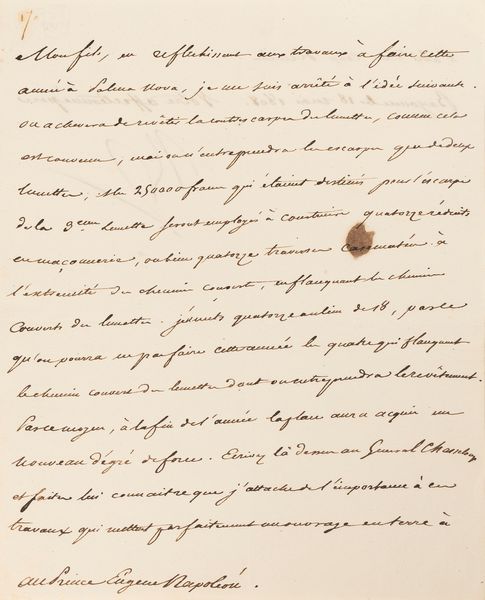 7
Mon fils, en reflechissant aux travaux à faire cette
année à Palma Nova, je me suis arrêté à l'idée suivante.
on achevera de revêtir la contrescarpe des lunettes, comme cela
est convenu, mais on n'entreprendra les escarpes que de deux
lunettes. Les 250000 francs qui étaient destinés pour l'escarpe
de la 3eme lunette seront employés à construire quatorze réduits
en maçonnerie, ou bien quatorze traverses casematées à
l'extremité du chemin couvert, en flanquant les chemins
couverts des lunettes. je mets quatorze au lieu de 18, parce
qu'on pourra ne pas faire cette année les quatre qui flanquent
le chemin couvert des lunettes dont on entreprendra le revêtement.
Par ce moyen, à la fin de l'année la place aura acquis un
nouveau dégré de force. Ecrivez là dessus au Général Chasseloup
et faites lui connaitre que j'attache de l'importance à ces
travaux qui mettent parfaitement un ouvrage en terre à
au Prince Eugène Napoléon.